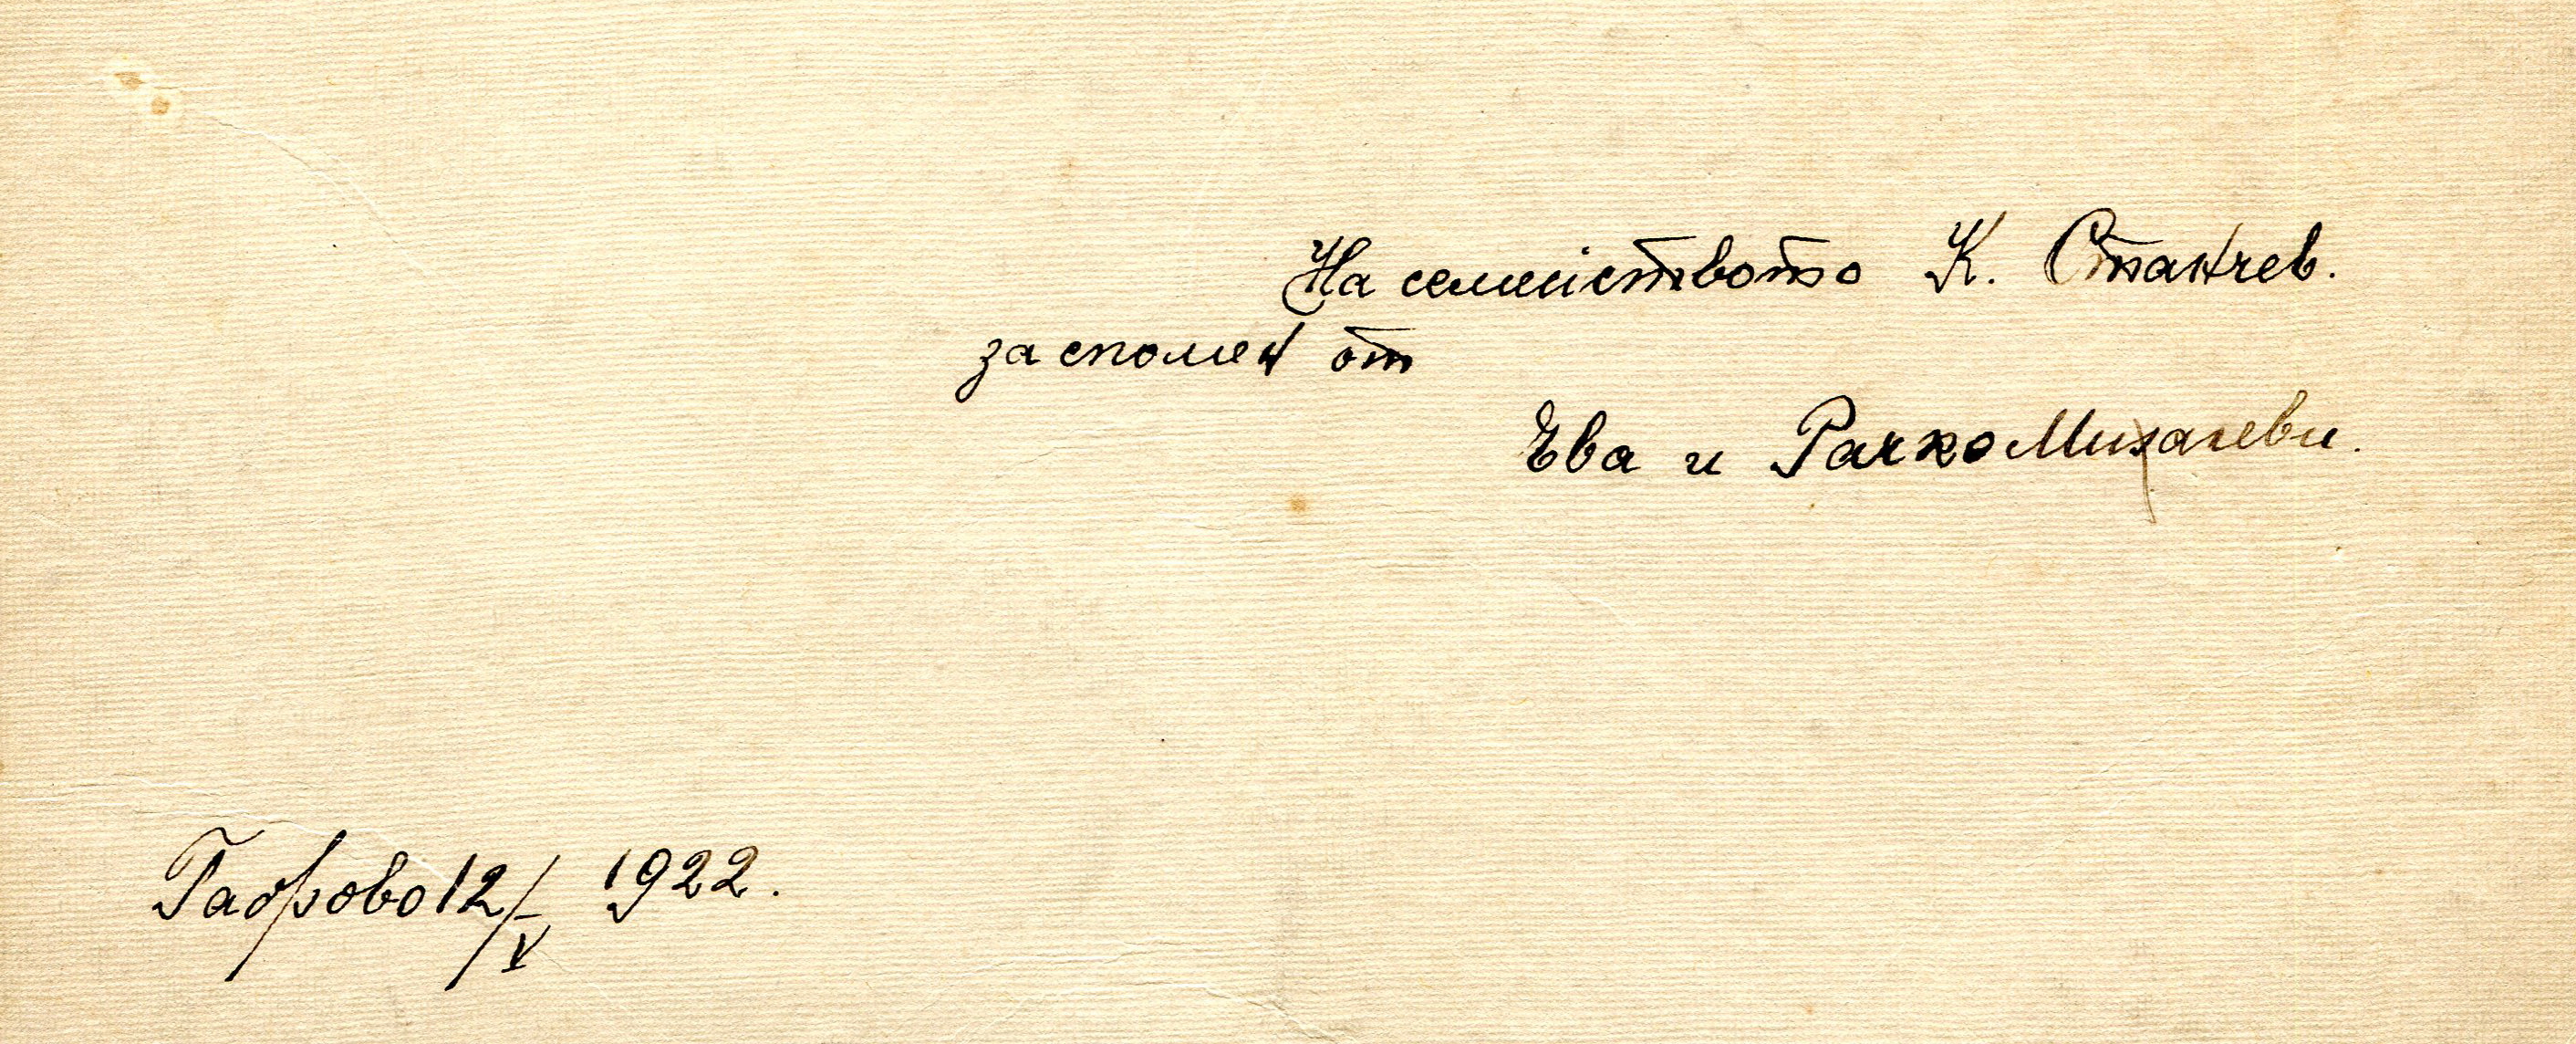 На семейството К. Станчев.
за спомен от
Ева и Рачко Михалеви.
Габрово 12/V 1922.